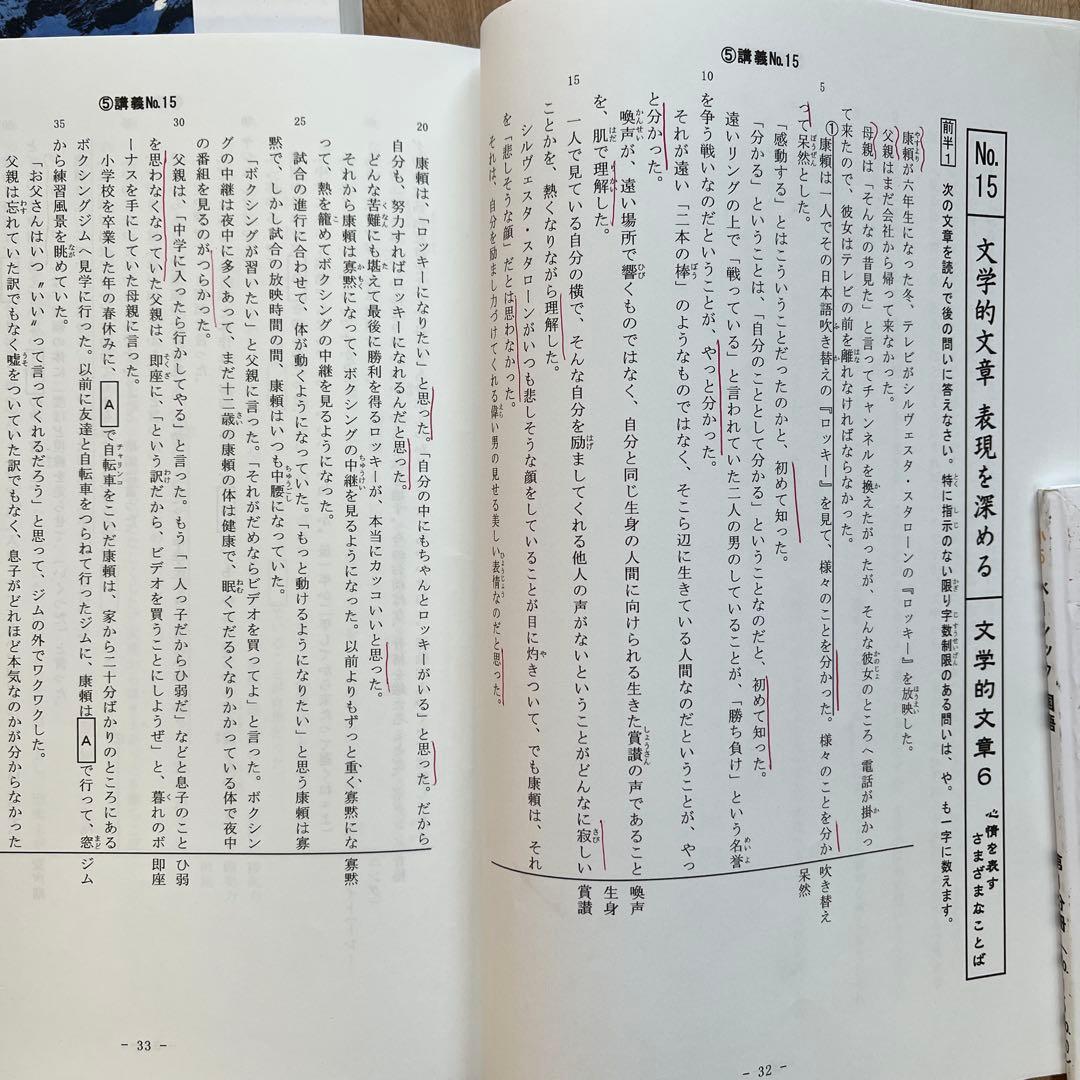 ⑤講義No.15
No.15 文学的文章 表現を深める 文学的文章6 心情を表す さまざまなことば
前半1 次の文章を読んで後の問いに答えなさい。特に指示のない限り字数制限のある問いは、や。も一字に数えます。
康頼が六年生になった冬、テレビがシルヴェスタ・スタローンの『ロッキー』を放映した。
父親はまだ会社から帰って来なかった。
母親は「そんなの昔見た」と言ってチャンネルを換えたがったが、そんな彼女のところへ電話が掛かっ
て来たので、彼女はテレビの前を離れなければならなかった。
①康頼は一人でその日本語吹き替えの『ロッキー』を見て、様々のことを分かった。様々のことを分か
5
って呆然とした。
「感動する」とはこういうことだったのかと、初めて知った。
「分かる」ということは、「自分のこととして分かる」ということなのだと、初めて知った。
遠いリングの上で「戦っている」と言われていた二人の男のしていることが、「勝ち負け」という名誉
を争う戦いなのだということが、やっと分かった。
10
それが遠い「二本の棒」のようなものではなく、そこら辺に生きている人間なのだということが、やっ
と分かった。
喚声が、遠い場所で響くものではなく、自分と同じ生身の人間に向けられる生きた賞讃の声であること
を、肌で理解した。
一人で見ている自分の横で、そんな自分を励ましてくれる他人の声がないということがどんなに寂しい
15
ことかを、熱くなりながら理解した。
シルヴェスタ・スタローンがいつも悲しそうな顔をしていることが目に灼きついて、でも康頼は、それ
を「悲しそうな顔」だとは思わなかった。
それは、自分を励まし力づけてくれる偉い男の見せる美しい表情なのだと思った。
吹き替え
呆然
喚声
生身
賞讃
- 32 -
⑤講義No.15
康頼は、「ロッキーになりたい」と思った。「自分の中にもちゃんとロッキーがいる」と思った。だから
20
自分も、努力すればロッキーになれるんだと思った。
どんな苦難にも堪えて最後に勝利を得るロッキーが、本当にカッコいいと思った。
それから康頼は寡黙になって、ボクシングの中継を見るようになった。以前よりもずっと重く寡黙にな
って、熱を籠めてボクシングの中継を見るようになった。
試合の進行に合わせて、体が動くようになっていた。「もっと動けるようになりたい」と思う康頼は寡
25
黙で、しかし試合の放映時間の間、康頼はいつも中腰になっていた。
「ボクシングが習いたい」と父親に言った。「それがだめならビデオを買ってよ」と言った。ボクシン
グの中継は夜中に多くあって、まだ十二歳の康頼の体は健康で、眠くてだるくなりかかっている体で夜中
の番組を見るのがつらかった。
父親は、「中学に入ったら行かしてやる」と言った。もう「一人っ子だからひ弱だ」などと息子のこと
30
を思わなくなっていた父親は、即座に、「という訳だから、ビデオを買うことにしようぜ」と、暮れのボ
ーナスを手にしていた母親に言った。
小学校を卒業した年の春休みに、Aで自転車をこいだ康頼は、家から二十分ばかりのところにある
ボクシングジムへ見学に行った。以前に友達と自転車をつらねて行ったジムに、康頼はAで行って、窓
から練習風景を眺めていた。
35
「お父さんはいつ〝いい〟って言ってくれるだろう」と思って、ジムの外でワクワクした。
父親は忘れていた訳でもなく嘘をついていた訳でもなく、息子がどれほど本気なのかが分からなかった
寡黙
ひ弱
即座
ジム
- 33 -